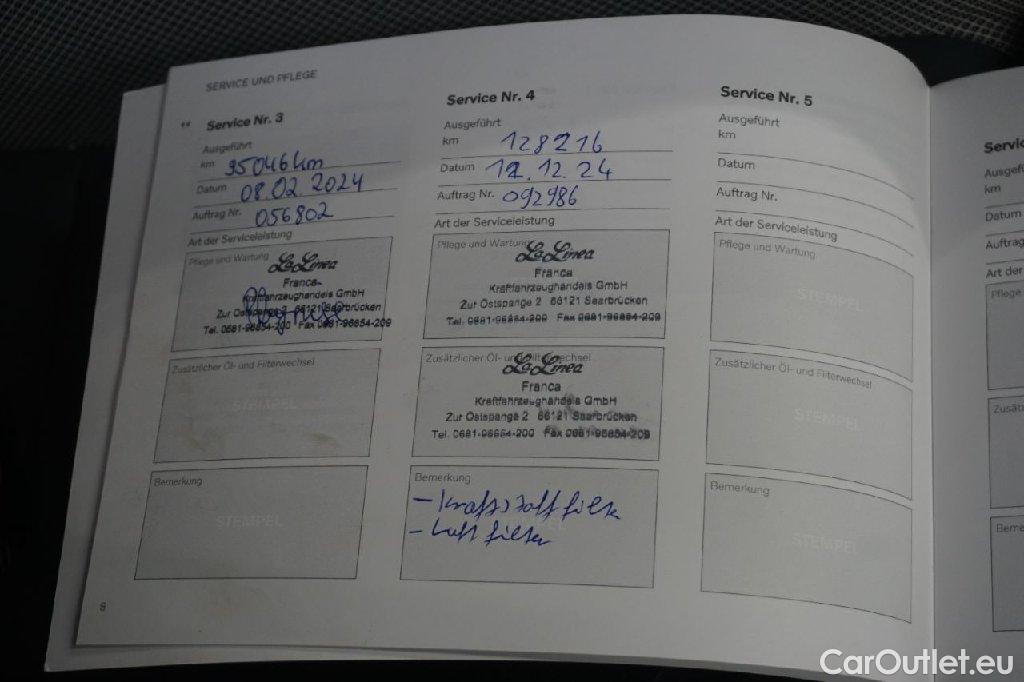 SERVICE UND PFLEGE
Service Nr. 3
Ausgeführt
km 95046 km
Datum 08.02.2024
Auftrag Nr. 056802
Art der Serviceleistung
Pflege und Wartung
La Linea
Franca
Kraftfahrzeughandels GmbH
Zur Ostspange 2 66121 Saarbrücken
Tel. 0681-96854-200 Fax 0681-96854-209
Zusätzlicher Öl- und Filterwechsel
STEMPEL
Bemerkung
STEMPEL
8
Service Nr. 4
Ausgeführt
km 128216
Datum 12.12.24
Auftrag Nr. 092986
Art der Serviceleistung
Pflege und Wartung
La Linea
Franca
Kraftfahrzeughandels GmbH
Zur Ostspange 2 66121 Saarbrücken
Tel. 0681-96854-200 Fax 0681-96854-209
Zusätzlicher Öl- und Filterwechsel
La Linea
Franca
Kraftfahrzeughandels GmbH
Zur Ostspange 2 66121 Saarbrücken
Tel. 0681-96854-200 Fax 0681-96854-209
Bemerkung
- Kraftstofffilter
- Luftfilter
Service Nr. 5
Ausgeführt
km
Datum
Auftrag Nr.
Art der Serviceleistung
Pflege und Wartung
STEMPEL
Zusätzlicher Öl- und Filterwechsel
STEMPEL
Bemerkung
STEMPEL
Servic
Ausgef
km
Datum
Auftrag
Art der
Pflege
Zusätz
Beme
CarOutlet.eu